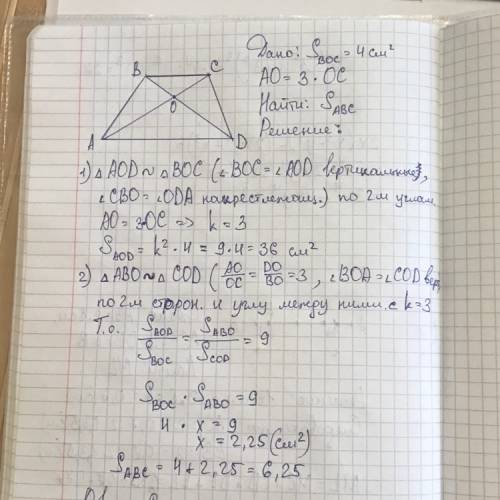 Дано: S BOC = 4 см²
AO = 3 · OC
Найти: S ABC
Решение:
B C
O
A D
1) △AOD ~ △BOC (∠BOC = ∠AOD вертикальные,
∠CBO = ∠ODA накрестлежащ.) по 2м углам.
AO = 3OC => k = 3
S AOD = k² · 4 = 9 · 4 = 36 см²
2) △ABO ~ △COD (AO/OC = DO/BO = 3, ∠BOA = ∠COD верт.
по 2м сторон. и углу между ними. с k = 3
Т.о. S AOD / S BOC = S ABO / S COD = 9
S BOC · S ABO = 9
4 · x = 9
x = 2,25 (см²)
S ABC = 4 + 2,25 = 6,25